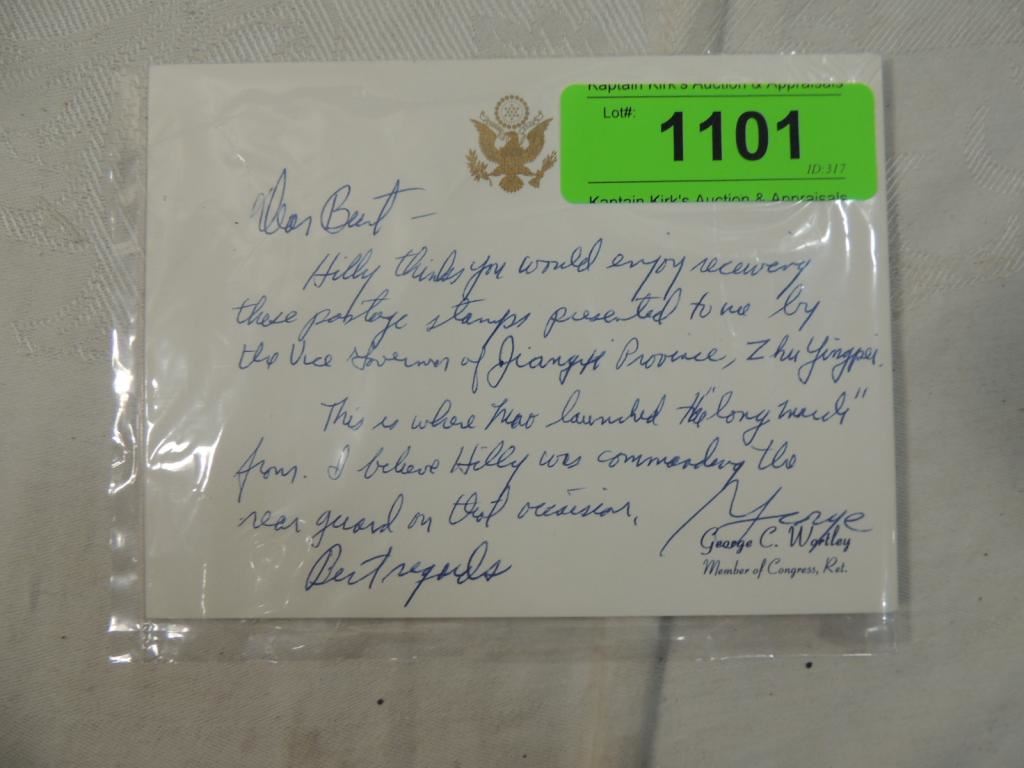 Kaptain Kirk's Auction & Appraisals
Lot#:
1101
ID:317
Kaptain Kirk's Auction & Appraisals
Dear Burt –
Hilly thinks you would enjoy receiving
these postage stamps presented to me by
the Vice Governor of Jiangxi Province, Zhu Yingpei.
This is where Mao launched the "long march"
from. I believe Hilly was commanding the
rear guard on that occision.
Best regards
George
George C. Wortley
Member of Congress, Ret.